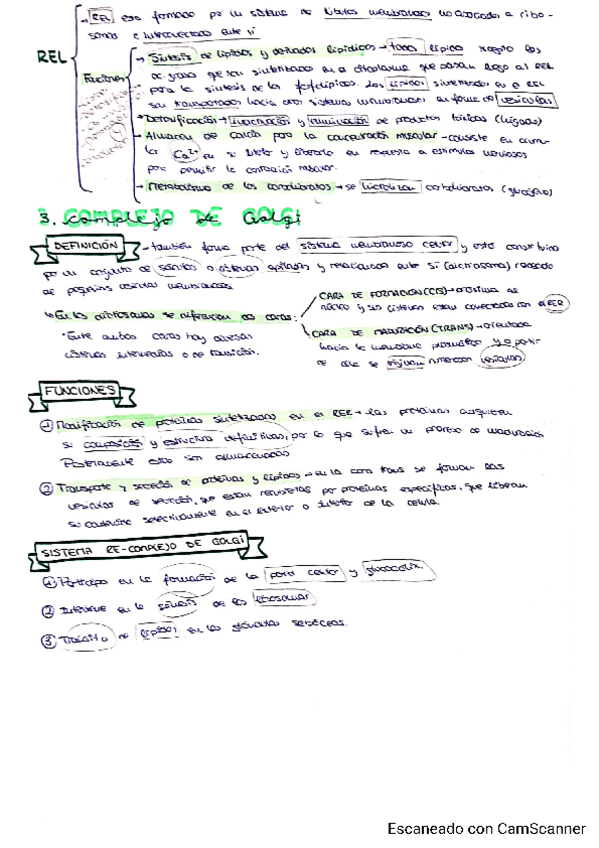 - REL esta formado por un sistema de túbulos membranosos no asociados a ribo-
somas e interconectados entre sí
REL
Funciones
- Síntesis de lípidos y derivados lipídicos → todos lípidos excepto los
ác grasos que son sintetizados en el citoplasma que pasan luego al REL
para la síntesis de los fosfolípidos. Los lípidos sintetizados en el REL
son transportados hacia otros sistemas membranosos en forma de vesículas
- Detoxificación → inactivación y eliminación de productos tóxicos (hígado)
- Almacén de calcio para la contracción muscular - consiste en acumu-
lar Ca2+ en su interior y liberarlo en respuesta a estímulos nerviosos
para permitir la contracción muscular.
- Metabolismo de los carbohidratos → se carbohidratos (glucógeno)
3. COMPLEJO DE Golgi
DEFINICIÓN - también forma parte del sistema membranoso celular y está constituido
por un conjunto de sáculos o cisternas apilados y relacionados entre sí (dictiosoma) rodeado
de pequeñas vesículas membranosas
↳ En los dictiosomas se diferencian dos caras:
CARA DE FORMACIÓN (CIS) → próxima al
núcleo y sus cisternas están conectadas con el RER
CARA DE MADURACIÓN (TRANS) → orientada
hacia la membrana plasmática y a partir
de ella se numerosas vesículas.
*Entre ambas caras hay diversas
cisternas intermedias o de transición.
FUNCIONES
① Modificación de proteínas sintetizadas en el RER → las proteínas adquieren
su composición y estructura definitivas, por lo que sufre un proceso de maduración
Posteriormente estas son almacenadas
② Transporte y secreción de proteínas y lípidos → en la cara trans se forman las
vesículas de secreción, que están revestidas por proteínas específicas, que liberan
su contenido selectivamente en el exterior o interior de la célula.
SISTEMA RE-COMPLEJO DE GOLGI
① Participa en la formación de la pared celular y glucocálix.
② Interviene en la síntesis de los lisosomas
③ Tránsito de lípidos en las glándulas sebáceas.
Escaneado con CamScanner